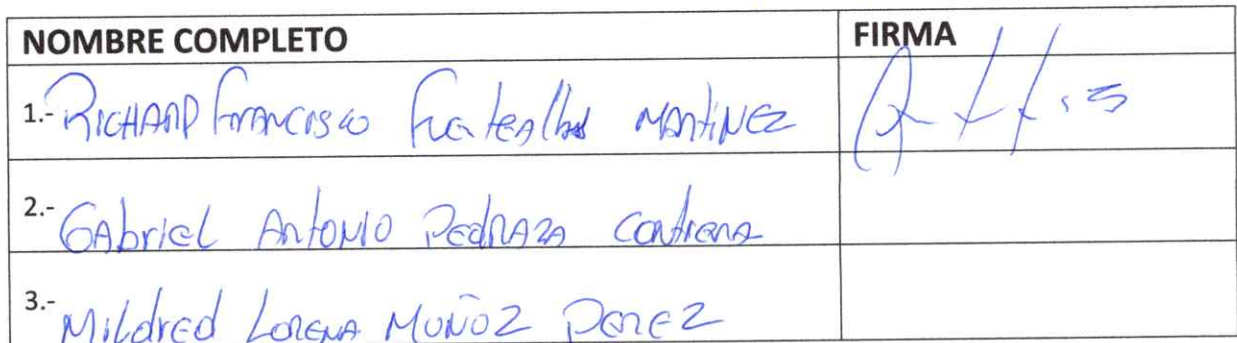 NOMBRE COMPLETO FIRMA
1.- RICHARD FRANCISCO MARTINEZ
2.- GAbriel Antonio PedRAZA
3.- Mildred LORENA MUÑOZ PEREZ